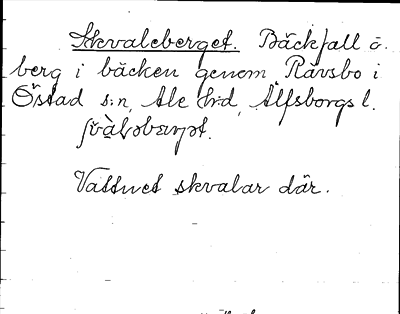 Skvaleberget. Bäckfall o.
berg i bäcken genom Rävsbo i
Östad s:n, Ale h:d, Älfsborgs l.
Vattnet skvalar där.